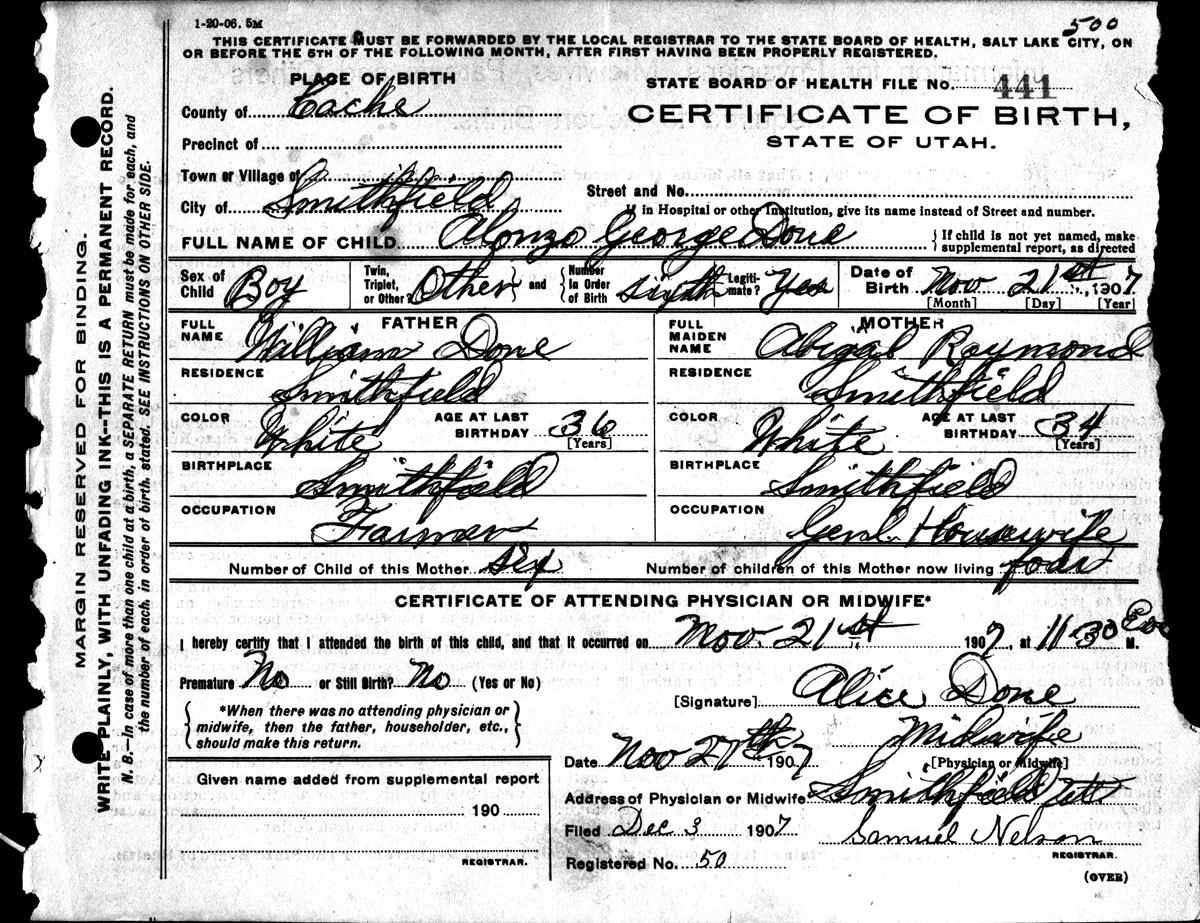 1-20-06. 5M
500
THIS CERTIFICATE MUST BE FORWARDED BY THE LOCAL REGISTRAR TO THE STATE BOARD OF HEALTH, SALT LAKE CITY, ON
OR BEFORE THE 5TH OF THE FOLLOWING MONTH, AFTER FIRST HAVING BEEN PROPERLY REGISTERED.
PLACE OF BIRTH
STATE BOARD OF HEALTH FILE No. 441
County of Cache
CERTIFICATE OF BIRTH,
STATE OF UTAH.
Precinct of
Town or Village of
Street and No.
City of Smithfield
If in Hospital or other Institution, give its name instead of Street and number.
FULL NAME OF CHILD Alonzo George Done
{If child is not yet named, make
supplemental report, as directed
Sex of Child Boy
Twin, Triplet, or Other? Other } and { Number In Order of Birth sixth
Legitimate? Yes
Date of Birth Nov 21st, 1907
[Month] [Day] [Year]
FATHER
FULL NAME William Done
RESIDENCE Smithfield
COLOR White AGE AT LAST BIRTHDAY 36
[Years]
BIRTHPLACE Smithfield
OCCUPATION Farmer
MOTHER
FULL MAIDEN NAME Abigal Raymond
RESIDENCE Smithfield
COLOR White AGE AT LAST BIRTHDAY 34
[Years]
BIRTHPLACE Smithfield
OCCUPATION Genl. Housewife
Number of Child of this Mother six
Number of children of this Mother now living four
CERTIFICATE OF ATTENDING PHYSICIAN OR MIDWIFE*
I hereby certify that I attended the birth of this child, and that it occurred on Nov. 21st 1907, at 11-30 M.
Premature No or Still Birth? No (Yes or No)
[Signature] Alice Done
{*When there was no attending physician or
midwife, then the father, householder, etc.,
should make this return.}
Midwife
Date Nov 27th 1907
[Physician or Midwife]
Address of Physician or Midwife Smithfield
Given name added from supplemental report
190
REGISTRAR.
Filed Dec 3 1907
Samuel Nelson
REGISTRAR.
Registered No. 50
(OVER)
MARGIN RESERVED FOR BINDING.
WRITE PLAINLY, WITH UNFADING INK--THIS IS A PERMANENT RECORD.
N. B.--In case of more than one child at a birth, a SEPARATE RETURN must be made for each, and
the number of each, in order of birth, stated. SEE INSTRUCTIONS ON OTHER SIDE.